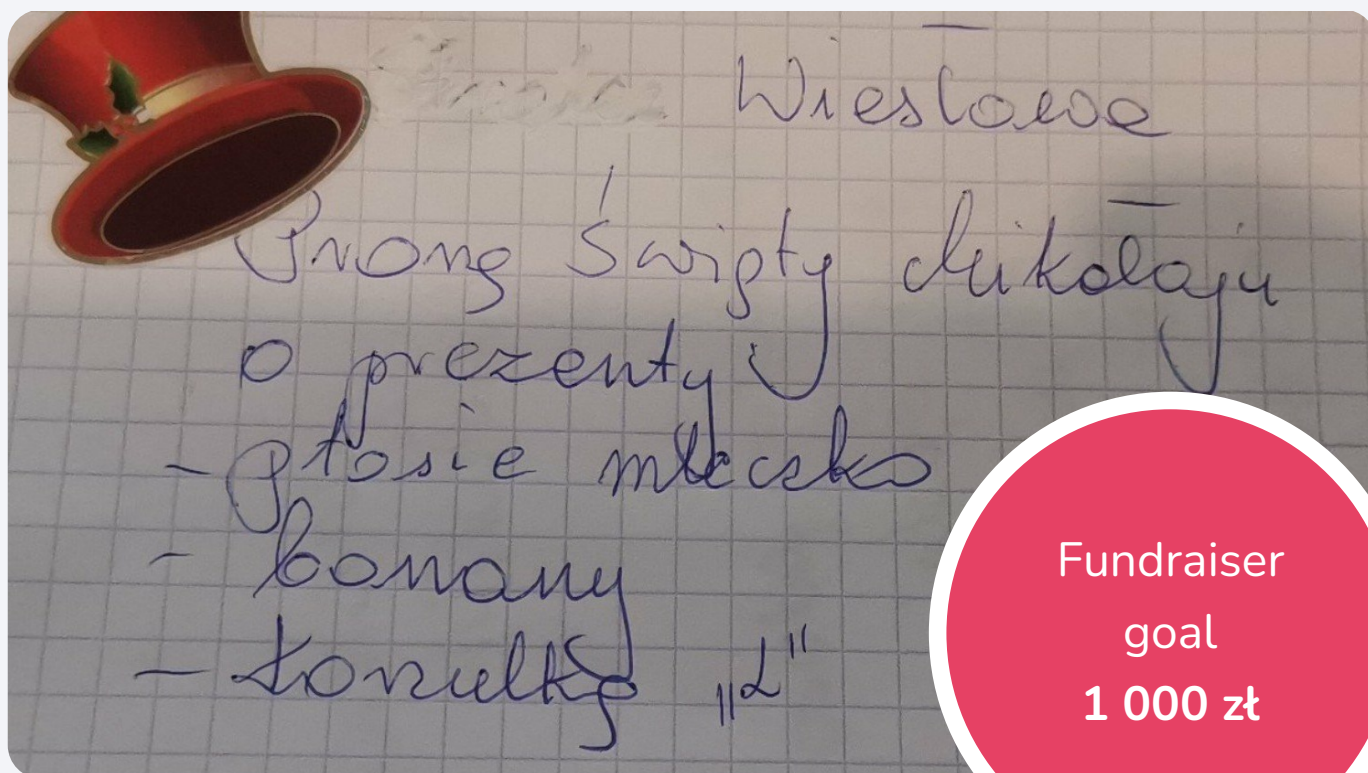 Wiesława
Proszę Święty Mikołaju
o prezenty
- ptasie mleczko
- banany
- koszulkę „L"
Fundraiser
goal
1 000 zł